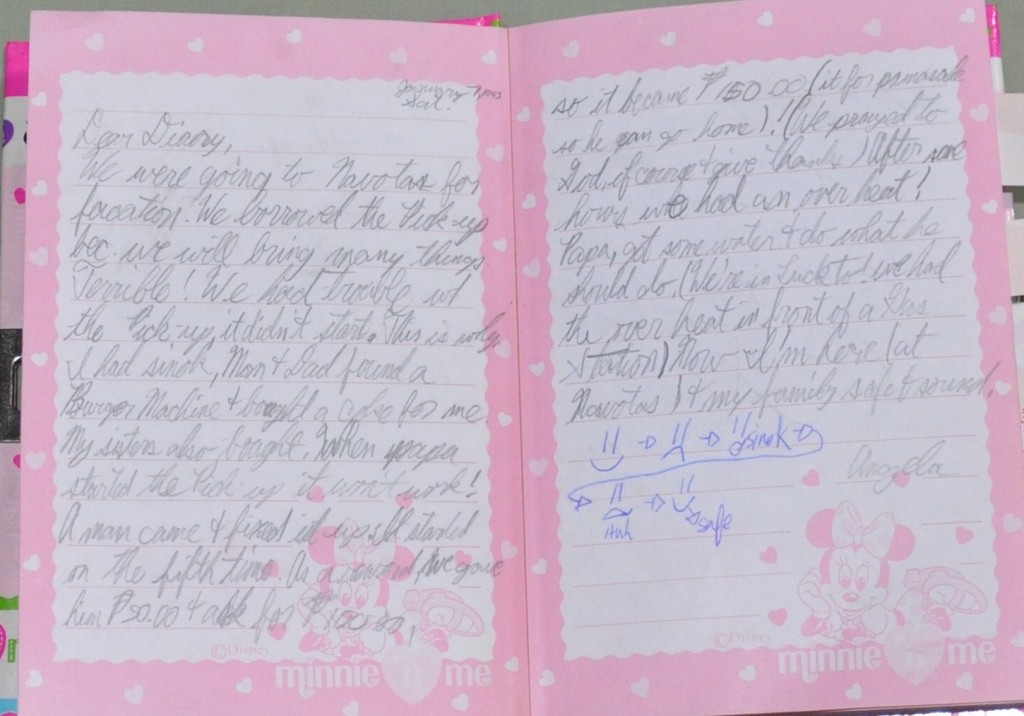 January 7, 
Sat.
Dear Diary,
We were going to Navotas for
facation! We borrowed the Pick-up
bec. we will bring many things
Terrible! We had trouble w/
the Pick-up, it didn't start. This is why
I had sinok, Mom & Dad found a
Burger Machine & bought a coke for me
My sisters also bought. When papa
started the Pick-up it won't work!
A man came & fixed it up. It started
on the fifth time. As a reward, we gave
him ₱50.00 & ask for ₱100.00,
©Disney
minnie n me
so it became ₱150.00 (it for pamasahe
so he can go home)! (We prayed to
God, of course & give thanks) After some
hours we had an over heat!
Papa, got some water & do what he
should do. (We're in luck too! we had
the over heat in front of a Gas
Station) Now I'm here (at
Navotas) & my family safe & sound.
sinok
Angela
huh
safe
©Disney
minnie n me